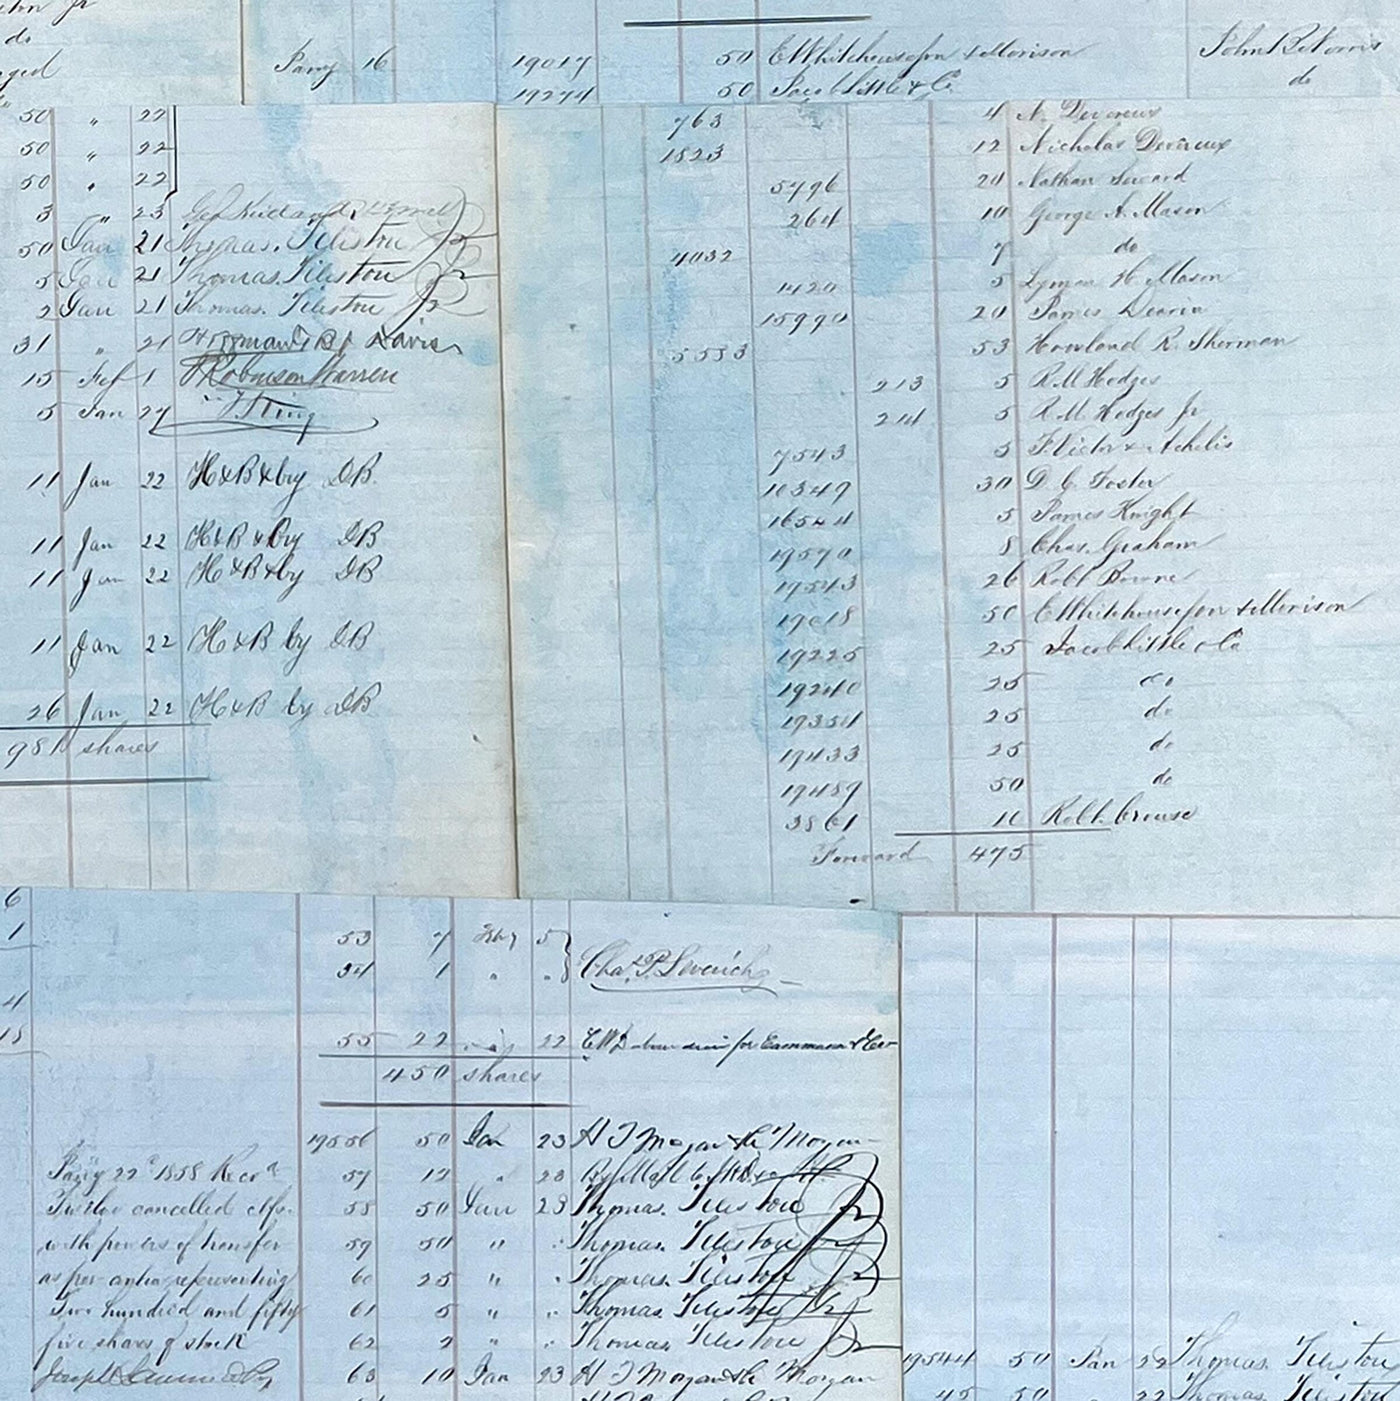 do
Jany 16 19017 50 E Whitehouse Son & Morison
do
19274 50 Jacob Little & Co
50 " 22
50 " 22
50 " 22
3 " 23
50 Jan 21 Thomas Tileston Jr
5 Jan 21 Thomas Tileston Jr
2 Jan 21 Thomas Tileston Jr
31 " 21 Davis
15 Feb 1 Robinson Warren
5 Jan 27 King
11 Jan 22 H & B & by DB
11 Jan 22 H & B & by DB
11 Jan 22 H & B & by DB
11 Jan 22 H & B by DB
26 Jan 22 H & B by DB
981 shares
763 4 N. Devereux
1823 12 Nicholas Devereux
5796 20 Nathan Seward
264 10 George A. Mason
4032 7 do
1420 5 Lyman H. Mason
15990 20 James Dearin
5553 53 Howland R. Sherman
213 5 R M Hodges
214 5 R. M. Hodges Jr
7543 5 F. Victor & Achelis
10349 30 D. G. Foster
16544 5 James Knight
19570 8 Chas. Graham
19543 26 Robt Bowne
19018 50 E Whitehouse Son & Morison
19225 25 Jacob Little & Co
19240 25 do
19354 25 do
19433 25 do
19489 50 do
3861 10 Robt. Crouse
Forward 475
6
1
4
15
53 7 5
54 1 " " Chas. P. Leverich
55 22 22 for Cammann & Co
450 shares
19556 50 Jan 23 H T Morgan
Jany 22d 1858 Recd 57 12 " 23
Twelve cancelled ctfs. 58 50 Jan 23 Thomas Tileston Jr
with powers of transfer 59 50 " " Thomas Tileston Jr
as per representing 60 25 " " Thomas Tileston Jr
Two hundred and fifty 61 5 " " Thomas Tileston Jr
five shares of stock 62 2 " " Thomas Tileston Jr
Joseph 63 10 Jan 23 H T Morgan
19544 50 Jan 22 Thomas Tileston
45 50 22 Thomas Tileston